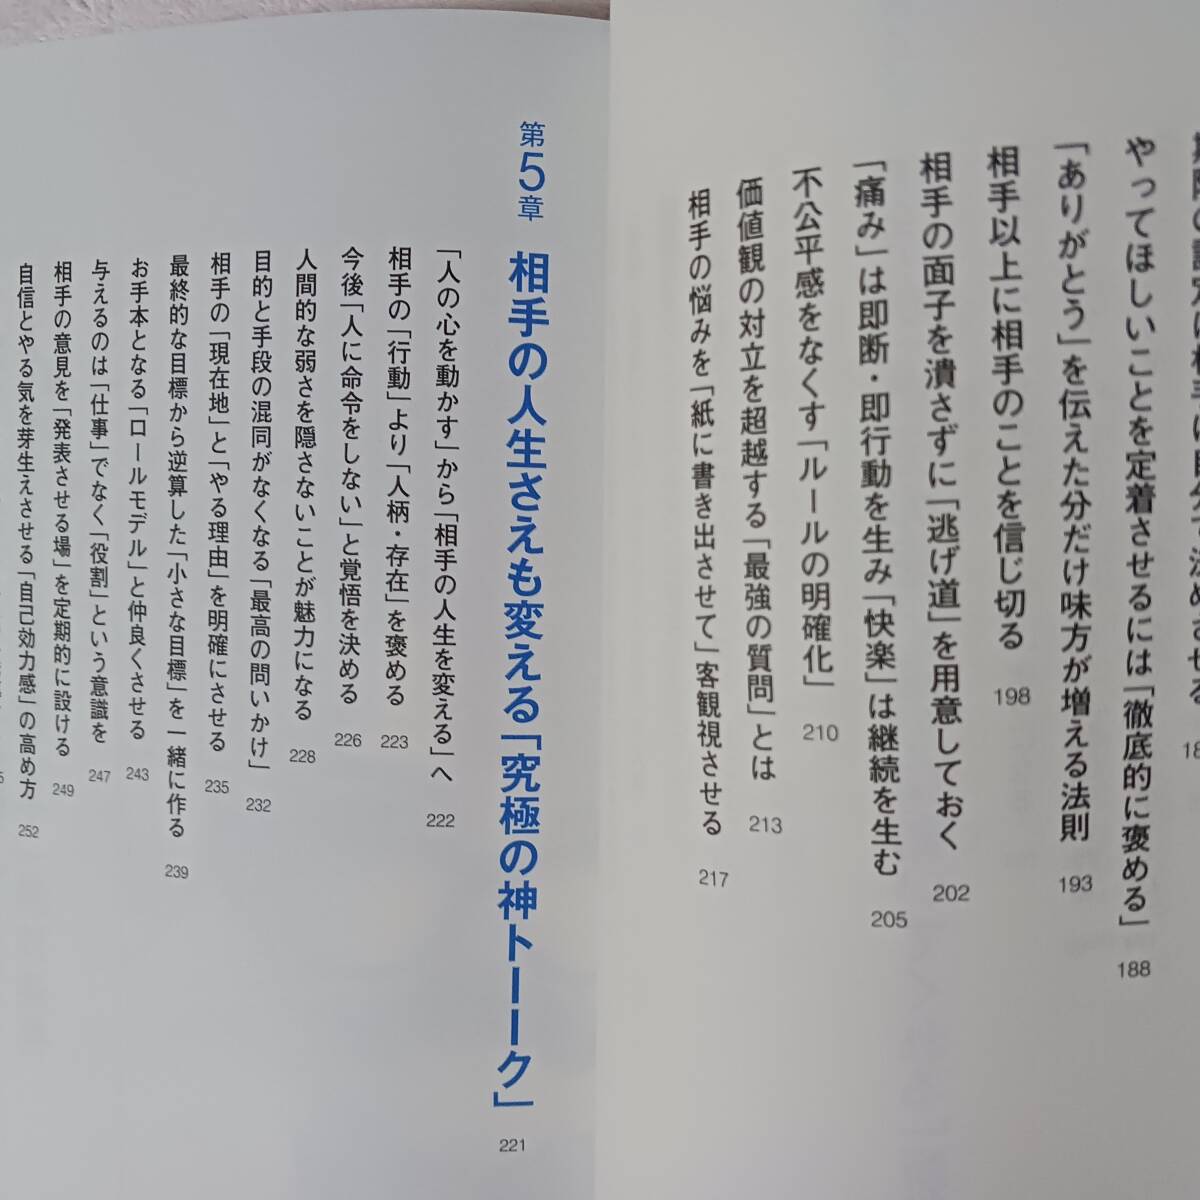 やってほしいことを定着させるには「徹底的に褒める」 188
「ありがとう」を伝えた分だけ味方が増える法則 193
相手以上に相手のことを信じ切る 198
相手の面子を潰さずに「逃げ道」を用意しておく 202
「痛み」は即断・即行動を生み「快楽」は継続を生む 205
不公平感をなくす「ルールの明確化」 210
価値観の対立を超越する「最強の質問」とは 213
相手の悩みを「紙に書き出させて」客観視させる 217
第5章 相手の人生さえも変える「究極の神トーーク」 221
「人の心を動かす」から「相手の人生を変える」へ 222
相手の「行動」より「人柄・存在」を褒める 223
今後「人に命令をしない」と覚悟を決める 226
人間的な弱さを隠さないことが魅力になる 228
目的と手段の混同がなくなる「最高の問いかけ」 232
相手の「現在地」と「やる理由」を明確にさせる 235
最終的な目標から逆算した「小さな目標」を一緒に作る 239
お手本となる「ロールモデル」と仲良くさせる 243
与えるのは「仕事」でなく「役割」という意識を 247
相手の意見を「発表させる場」を定期的に設ける 249
自信とやる気を芽生えさせる「自己効力感」の高め方 252